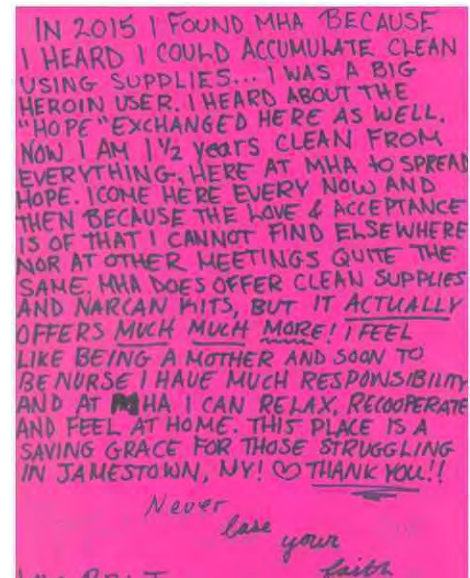 IN 2015 I FOUND MHA BECAUSE
I HEARD I COULD ACCUMULATE CLEAN
USING SUPPLIES... I WAS A BIG
HEROIN USER. I HEARD ABOUT THE
"HOPE" EXCHANGED HERE AS WELL.
NOW I AM 1 1/2 years CLEAN FROM
EVERYTHING, HERE AT MHA to SPREAD
HOPE. I COME HERE EVERY NOW AND
THEN BECAUSE THE LOVE & ACCEPTANCE
IS OF THAT I CANNOT FIND ELSEWHERE
NOR AT OTHER MEETINGS QUITE THE
SAME. MHA DOES OFFER CLEAN SUPPLIES
AND NARCAN KITS, BUT IT ACTUALLY
OFFERS MUCH MUCH MORE! I FEEL
LIKE BEING A MOTHER AND SOON TO
BE NURSE I HAVE MUCH RESPONSIBILITY
AND AT MHA I CAN RELAX, RECOOPERATE
AND FEEL AT HOME. THIS PLACE IS A
SAVING GRACE FOR THOSE STRUGGLING
IN JAMESTOWN, NY! ♡ THANK YOU!!
Never
lose
your
faith